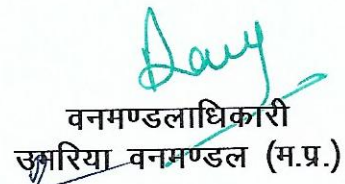 वनमण्डलाधिकारी
उमरिया वनमण्डल (म.प्र.)